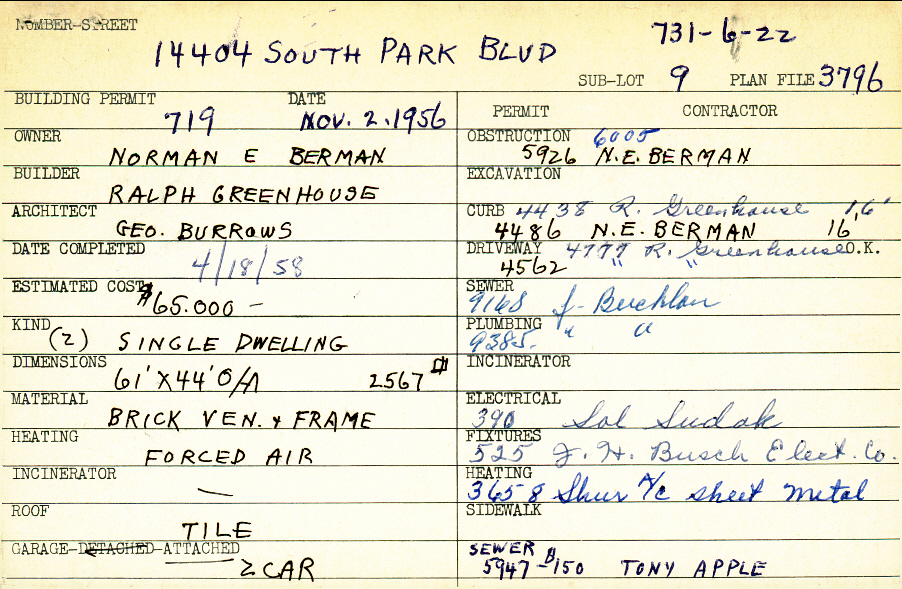 NUMBER-STREET
14404 SOUTH PARK BLVD
731-6-22
SUB-LOT 9 PLAN FILE 3796
BUILDING PERMIT DATE
719 NOV. 2. 1956
OWNER
NORMAN E BERMAN
BUILDER
RALPH GREENHOUSE
ARCHITECT
GEO. BURROWS
DATE COMPLETED
4/18/58
ESTIMATED COST
$65.000 -
KIND
(2) SINGLE DWELLING
DIMENSIONS
61' X 44' O/A 2567
MATERIAL
BRICK VEN. & FRAME
HEATING
FORCED AIR
INCINERATOR
—
ROOF
TILE
GARAGE-DETACHED-ATTACHED
2 CAR
PERMIT CONTRACTOR
OBSTRUCTION 6005
5926 N.E. BERMAN
EXCAVATION
CURB 4438 R. Greenhouse 16'
4486 N.E. BERMAN 16'
DRIVEWAY 4777 R. Greenhouse O.K.
4562 " "
SEWER
9168 J-
PLUMBING " "
9385-
INCINERATOR
ELECTRICAL
390 Sol Sudak
FIXTURES
525 F. H. Busch Elect. Co.
HEATING
3658 Shur A/C sheet Metal
SIDEWALK
SEWER
5947-$150 TONY APPLE